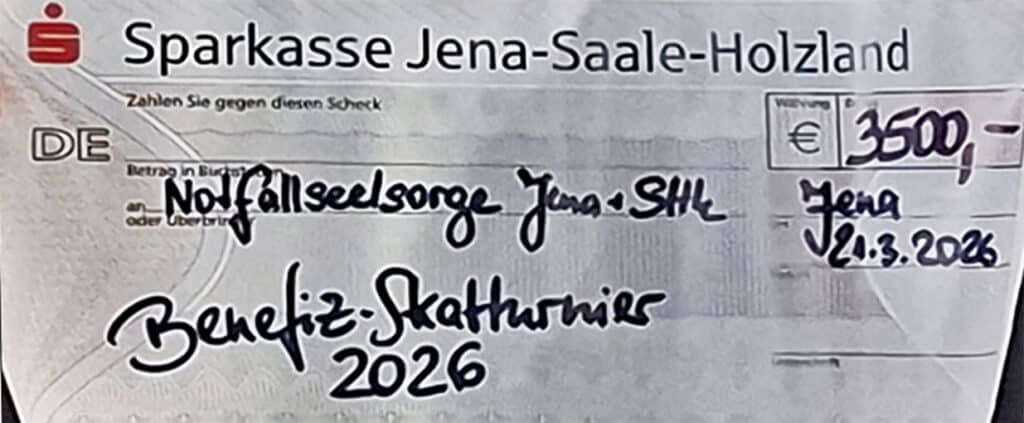 Sparkasse Jena-Saale-Holzland
Zahlen Sie gegen diesen Scheck
Währung
€ 3500,-
DE
Betrag in
Notfallseelsorge Jena + SHK
an
oder Überbringer
Jena
21.3.2026
Benefiz-Skatturnier
2026